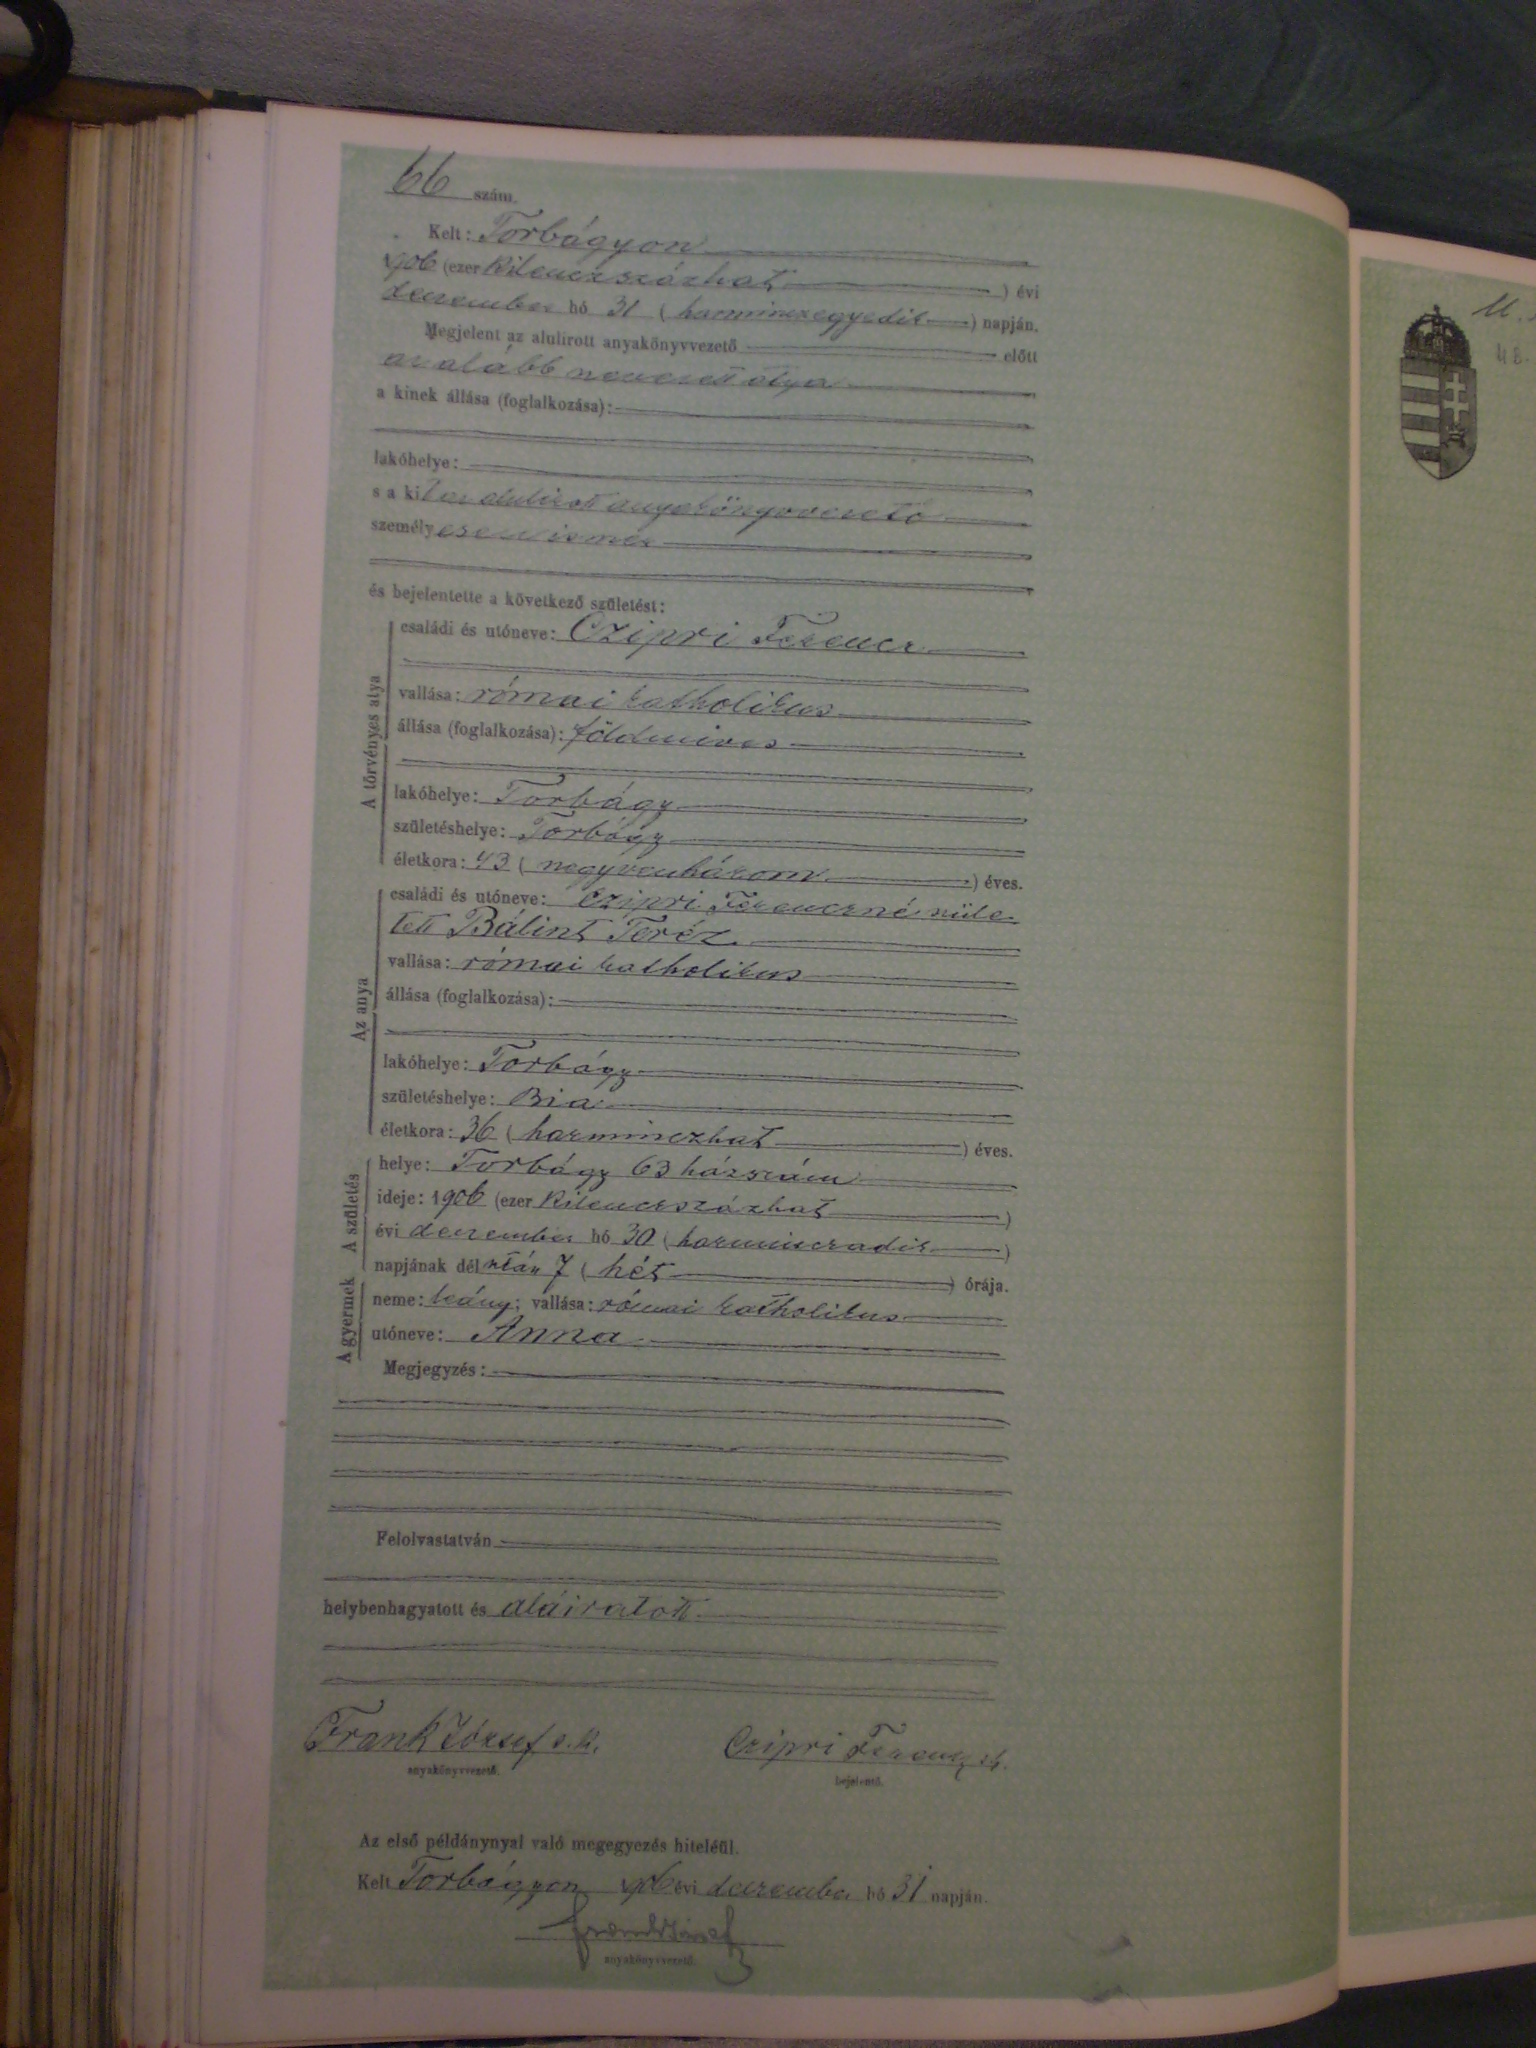 66 szám.
Kelt: Torbágyon
1906 (ezer kilenczszázhat) évi
deczember hó 31 (harminczegyedik) napján.
Megjelent az alulirott anyakönyvvezető előtt
az alább nevezett atya
a kinek állása (foglalkozása):
lakóhelye:
s a kit az alulirott anyakönyvvezető
személyesen ismer
és bejelentette a következő születést:
A törvényes atya
családi és utóneve: Czipri Ferencz
vallása: római katholikus
állása (foglalkozása): földmives
lakóhelye: Torbágy
születéshelye: Torbágy
életkora: 43 (negyvenhárom) éves.
Az anya
családi és utóneve: Czipri Ferenczné szüle
tett Bálint Teréz
vallása: római katholikus
állása (foglalkozása):
lakóhelye: Torbágy
születéshelye: Bia
életkora: 36 (harminczhat) éves.
A születés
helye: Torbágy 63 házszám
ideje: 1906 (ezer kilenczszázhat)
évi deczember hó 30 (harminczadik)
napjának délután 7 (hét) órája.
A gyermek
neme: leány; vallása: római katholikus
utóneve: Anna
Megjegyzés:
Felolvastatván
helybenhagyatott és aláiratott
Frank József s. k. Czipri Ferencz sk.
anyakönyvvezető. bejelentő.
Az első példánynyal való megegyezés hiteléül.
Kelt Torbágyon 906 évi deczember hó 31 napján.
Frank József
anyakönyvvezető.